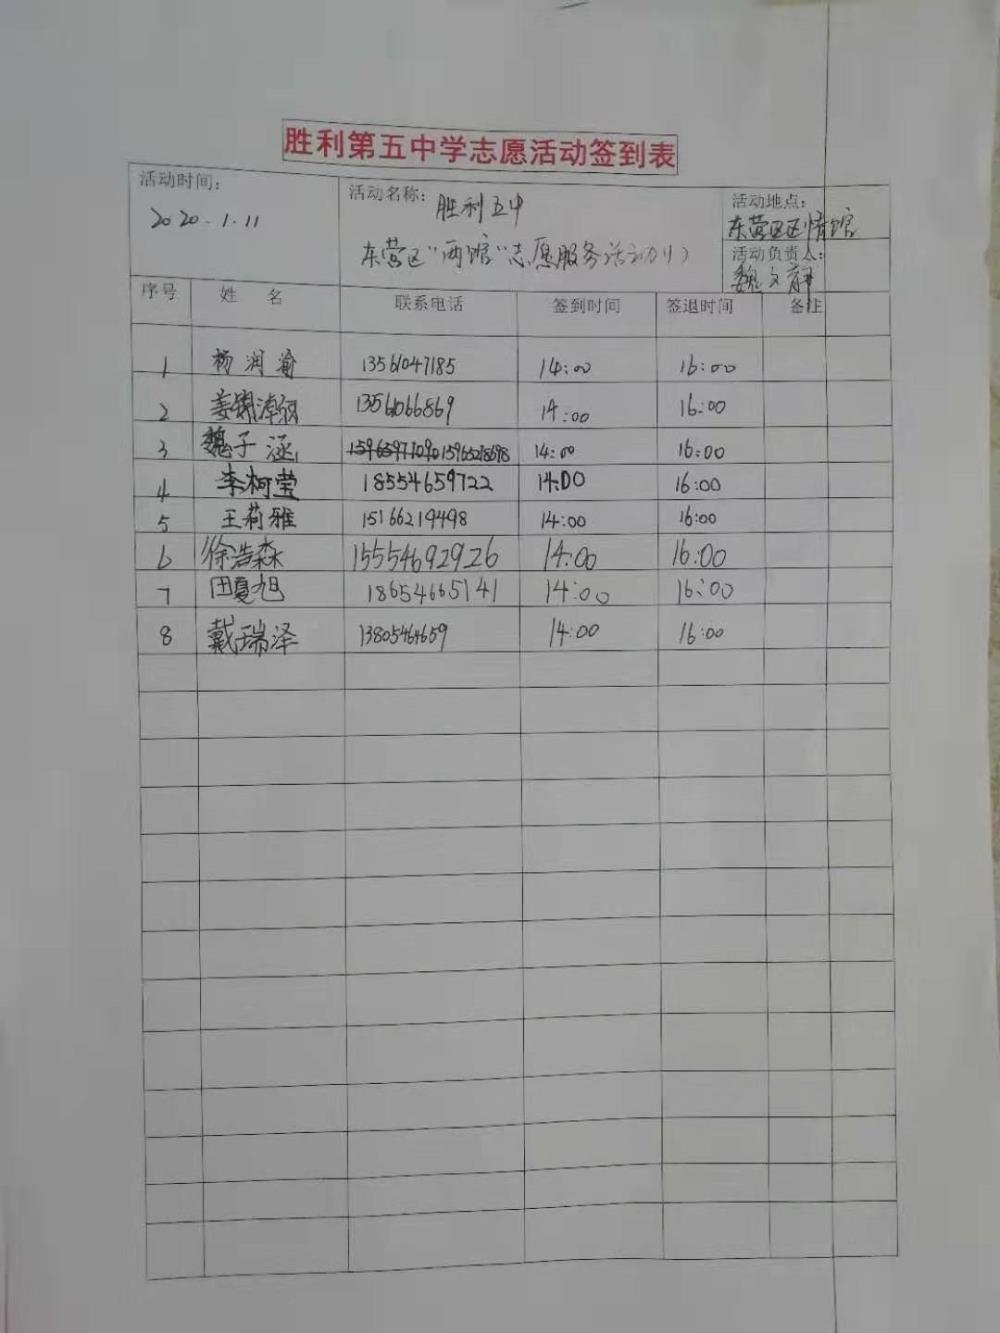 胜利第五中学志愿活动签到表
活动时间： 活动名称： 胜利五中 活动地点：
2020.1.11 东营区区情馆
东营区"两馆"志愿服务活动(1) 活动负责人：
魏文静
序号 姓 名 联系电话 签到时间 签退时间 备注
1 杨润渝 13561047185 14:00 16:00
2 姜 13561066869 14:00 16:00
3 魏子涵 15965278698 14:00 16:00
4 李柯莹 18554659722 14:00 16:00
5 王莉雅 15166219498 14:00 16:00
6 徐浩森 15554692926 14:00 16:00
7 田夏旭 18654665141 14:00 16:00
8 戴瑞泽 13805464659 14:00 16:00